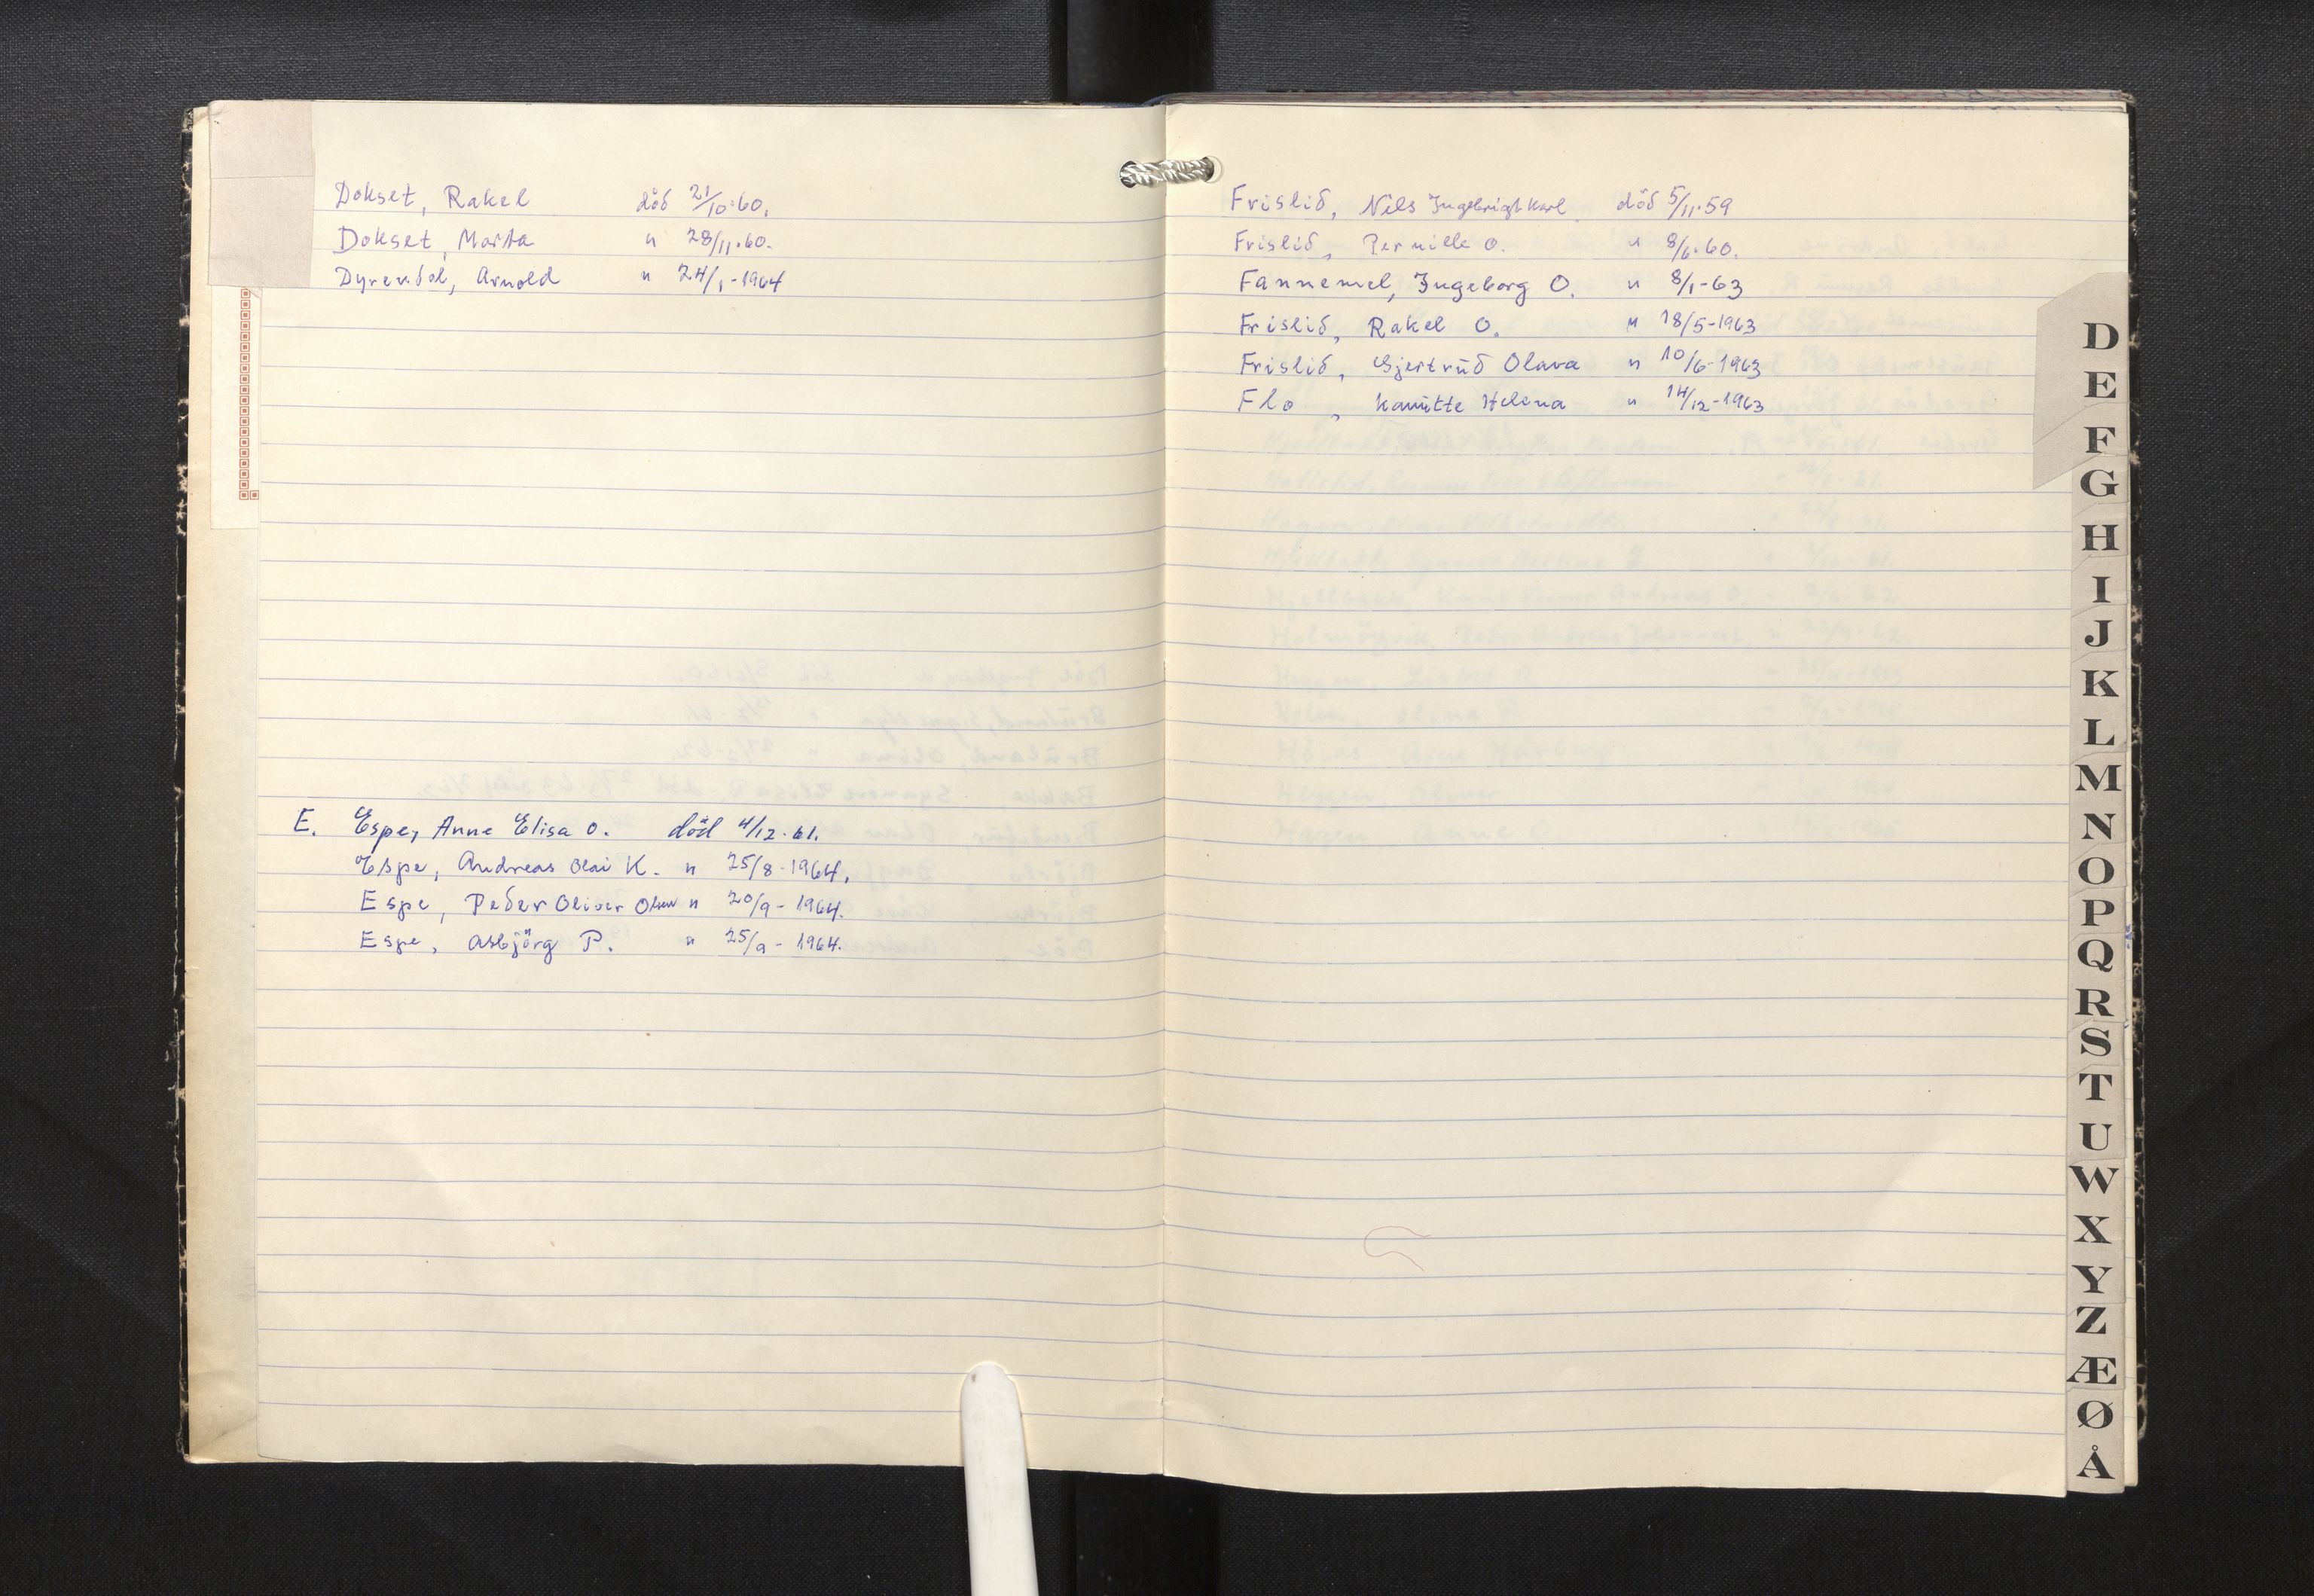 Dokset, Rakel død 21/10-60.
Dokset, Marta " 28/11-60.
Dyrendal, Arnold " 24/1-1964
E. Espe, Anne Elisa O. död 4/12-61.
Espe, Andreas Olai K. " 25/8-1964.
Espe, Peder Oliver " 20/9-1964.
Espe, Asbjörg P. " 25/9-1964.
Frislid, Nils Ingebrigt Karl død 5/11-59
Frislid, Pernille O. " 8/6-60.
Fannemel, Ingeborg O. " 8/1-63
Frislid, Rakel O. " 18/5-1963
Frislid, Gjertrud Olava " 10/6-1963
Flo, Kamitte Helena " 14/12-1963
D
E
F
G
H
I
J
K
L
M
N
O
P
Q
R
S
T
U
W
X
Y
Z
Æ
Ø
Å